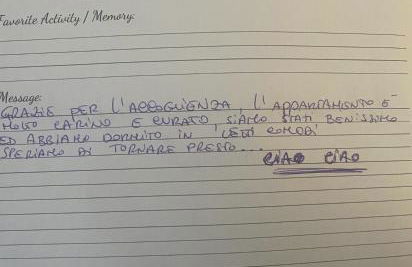 Favorite Activity / Memory:
Message:
GRAZIE PER L'ACCOGLIENZA, L'APPARTAMENTO È
MOLTO CARINO E CURATO, SIAMO STATI BENISSIMO
ED ABBIAMO DORMITO IN LETTI COMODI
SPERIAMO DI TORNARE PRESTO...
CIAO CIAO